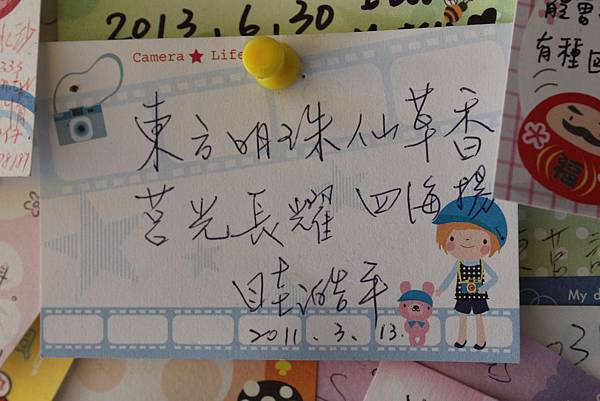 2013.6.30
Camera ★ Life
東方明珠仙草香
莒光長耀四海揚
眭澔平
2011.3.13.
有種
福
My d